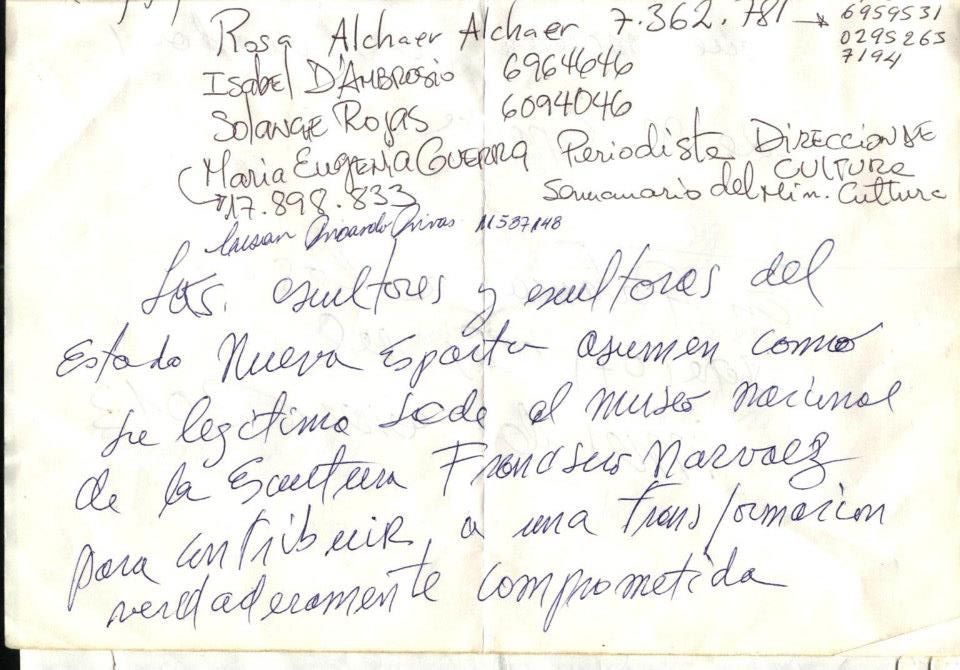 Rosa Alchaer Alchaer 7.362.781 → 6959531
0295265
7194
Isabel D'Ambrosio 6964646
Solange Rojas 6094046
Maria Eugenia Guerra Periodista Direccion de
Cultura
17.898.833 Semanario del Min. Cultura
Rivas 11587148
Los. escultores y escultoras del
Estado Nueva Esparta asumen como
su legitima sede el museo nacional
de la Escultura Francisco Narvaez
para contribuir, a una transformacion
verdaderamente comprometida